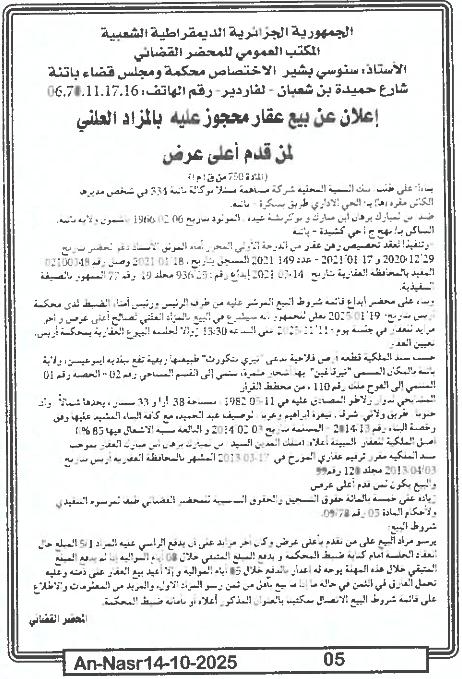 الجمهورية الجزائرية الديمقراطية الشعبية
المكتب العمومي للمحضر القضائي
الأستاذ: سنوسي بشير الاختصاص محكمة ومجلس قضاء باتنة
شارع حميدة بن شعبان - لفاردير - رقم الهاتف: 06.70.11.17.16
إعلان عن بيع عقار محجوز عليه بالمزاد العلني
لمن قدم أعلى عرض
(المادة 750 من ق إ م إ)
بناءا على طلب: بنك التنمية المحلية شركة مساهمة ممثلا بوكالة باتنة 334 في شخص مديرها
الكائن مقره بالحي الاداري طريق بسكرة - باتنة
ضد: بن لمبارك برهان ابن مبارك و بوكريشة عيدة، المولود بتاريخ 06 02 1966 بإشمول ولاية باتنة
الساكن بنهج ح حي كشيدة - باتنة
-وتنفيذا لعقد تخصيص رهن عقار من الدرجة الأولى المحرر أمام الموثق الأستاذ
2020-12-29 و 17-01-2021 - عدد 149-2021 المسجل بتاريخ 18-01-2021 وصل رقم 02100348
المقيد بالمحافظة العقارية بتاريخ 14-03-2021 إيداع رقم: 936/25 مجلد 19 رقم 77 الممهور بالصيغة
التنفيذية
وبناء على محضر إيداع قائمة شروط البيع المؤشر عليه من طرف الرئيس ورئيس أمناء الضبط لدى محكمة
أريس بتاريخ: 2025/01/19 نعلن للجمهور أنه سيشرع في البيع بالمزاد العلني لصالح أعلى عرض و آخر
مزايد للعقار في جلسة يوم: 2025/11/ على الساعة 13:30 زوالا لجلسة البيوع العقارية بمحكمة أريس.
تعيين العقار
حسب سند الملكية قطعة أرض فلاحية تدعى طبيعتها ريفية تقع ببلدية إينوغيسن، ولاية
باتنة بالمكان المسمى بها أشجار مثمرة، تنتمي إلى القسم المساحي رقم 02 - الحصة رقم 01
المنتمي إلى الفوج ملك رقم 110، من مخطط القرار
المشاعي لدوار المصادق عليه في 11-05-1982، مساحة 38 آرا و 33 سنتيار، يحدها شمالا: واد
جنوبا: طريق ولائي شرقا: غربا: عبد الحميد، مع كافة البناء المشيد عليها وفق
رخصة البناء رقم 13-2014 - المسلمة بتاريخ 03 02 2014 و البالغة نسبة الأشغال فيها 85%
أصل الملكية للعقار المبينة أعلاه: امتلك المدين السيد: بن لمبارك برهان ابن مبارك العقار بموجب
سند الملكية مقرر ترقيم عقاري المؤرخ في 17-03-2013 المشهر بالمحافظة العقارية أريس بتاريخ
2013/04/03 مجلد 120 رقم 99
والبيع يكون لمن قدم أعلى عرض
زيادة على خمسة بالمائة حقوق التسجيل والحقوق التناسبية للمحضر القضائي طبقا للمرسوم التنفيذي
ولأحكام المادة 05 رقم 09/78.
شروط البيع:
يرسو مزاد البيع على من تقدم بأعلى عرض وكان آخر مزايد على أن يدفع الراسي عليه المزاد 5/1 المبلغ حال
انعقاد الجلسة أمام كتابة ضبط المحكمة و يدفع المبلغ المتبقي خلال 08 أيام الموالية إذا لم يدفع المبلغ
المتبقي خلال هذه المهلة يوجه له إعذار بالدفع خلال 05 أيام الموالية و إلا أعيد البيع العقار على ذمته وعليه
تحمل الفارق في الثمن في حالة ما إذا ما بيع بأقل من ثمن رسو المزاد الأول، ولمزيد من المعلومات والاطلاع
على قائمة شروط البيع الاتصال بمكتبنا بالعنوان المذكور أعلاه أو بأمانة ضبط المحكمة.
المحضر القضائي
An-Nasr14-10-2025 05